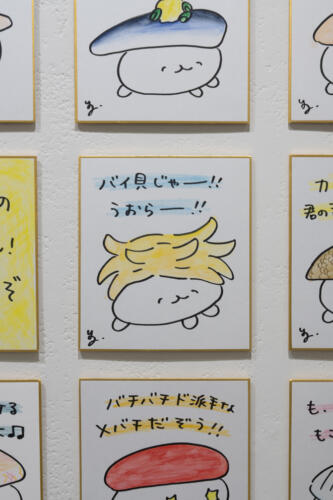 の
!
ぞ
バイ貝じゃー!!
うおらー!!
カ
君の
る
♫
バチバチド派手な
メバチだぞう!!
も、
もこ